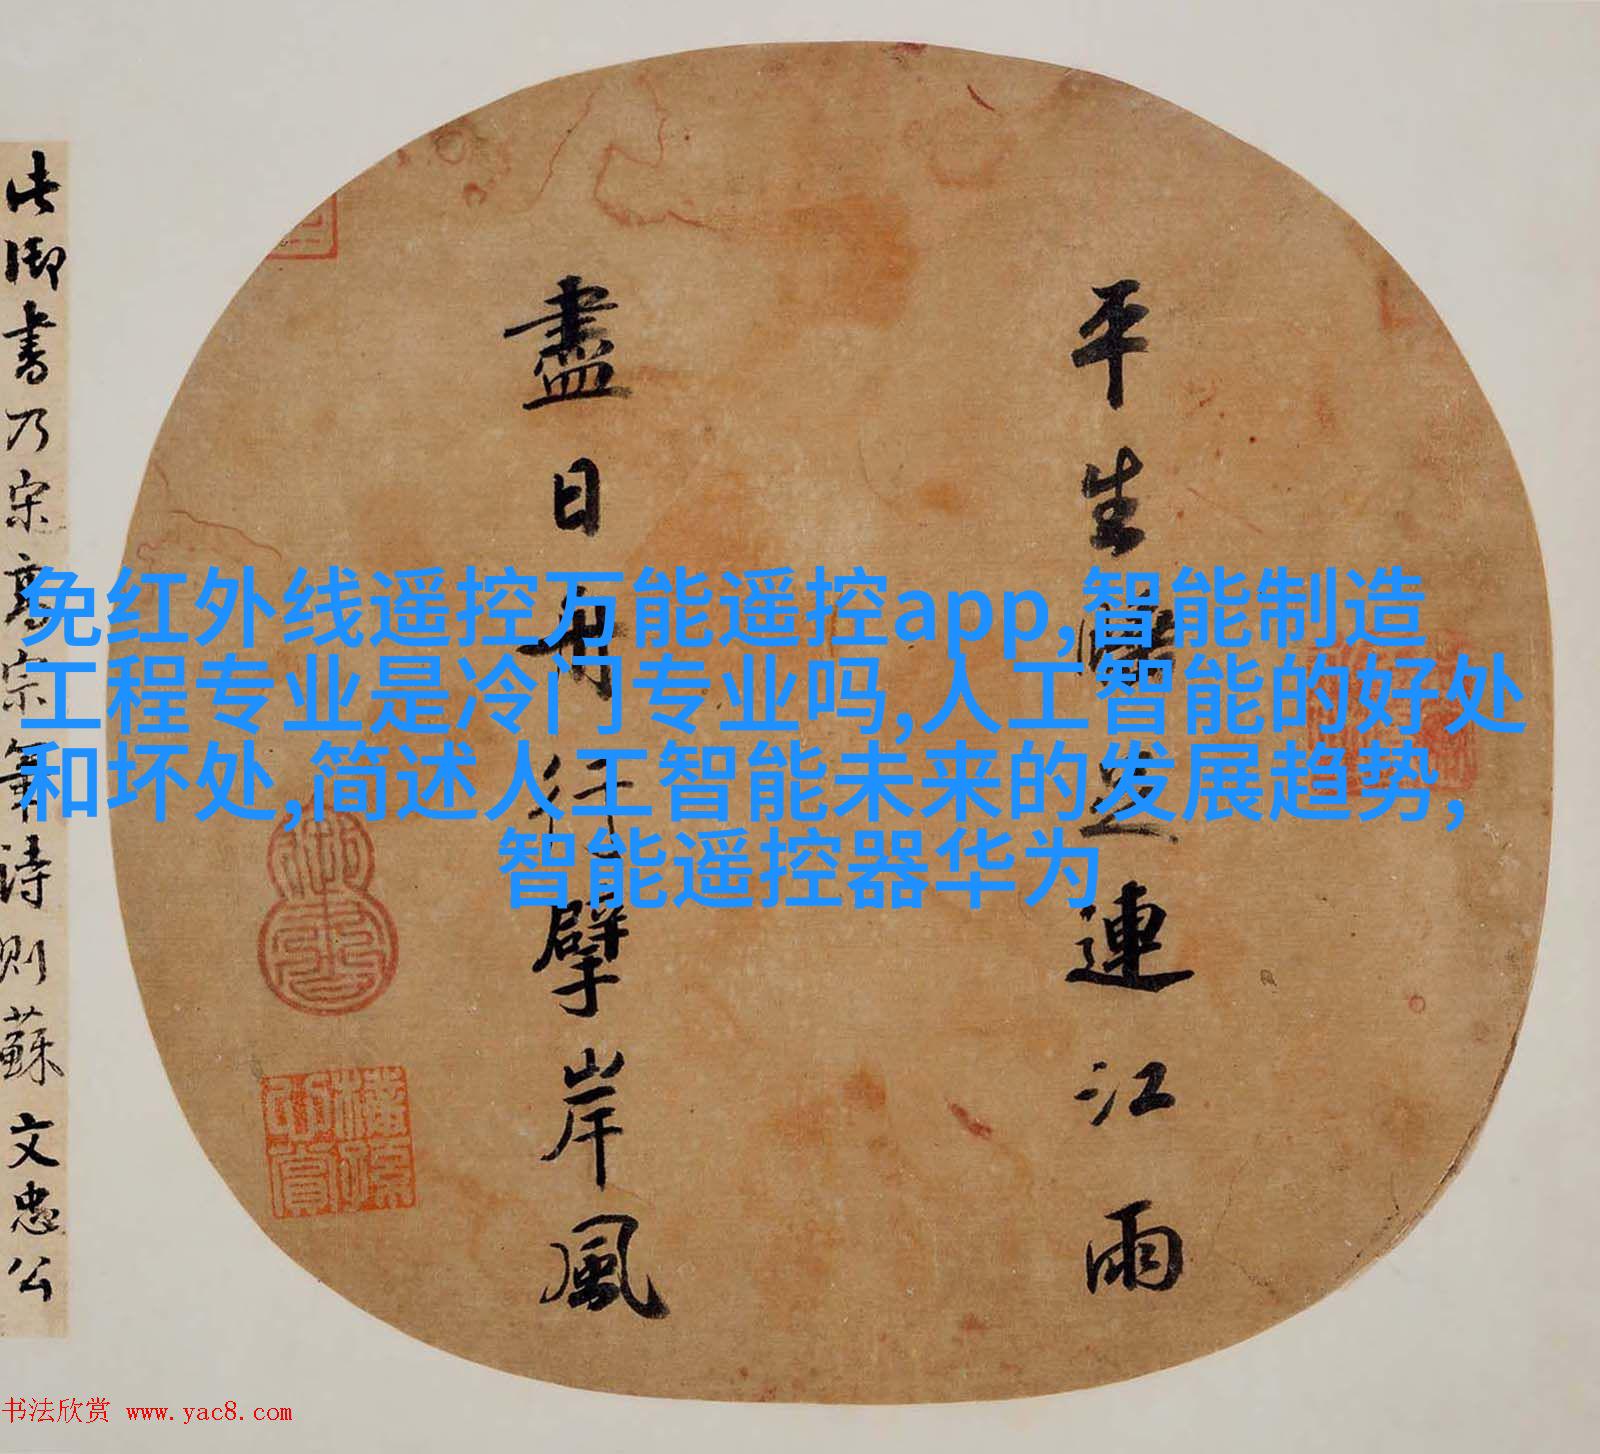 平生足連江雨
盡日舟行擘岸風
此御書乃宋高宗筆詩則蘇文忠公
免红外线遥控万能遥控app,智能制造
工程专业是冷门专业吗,人工智能的好处
和坏处,简述人工智能未来的发展趋势,
智能遥控器华为
书法欣赏 www.yac8.com